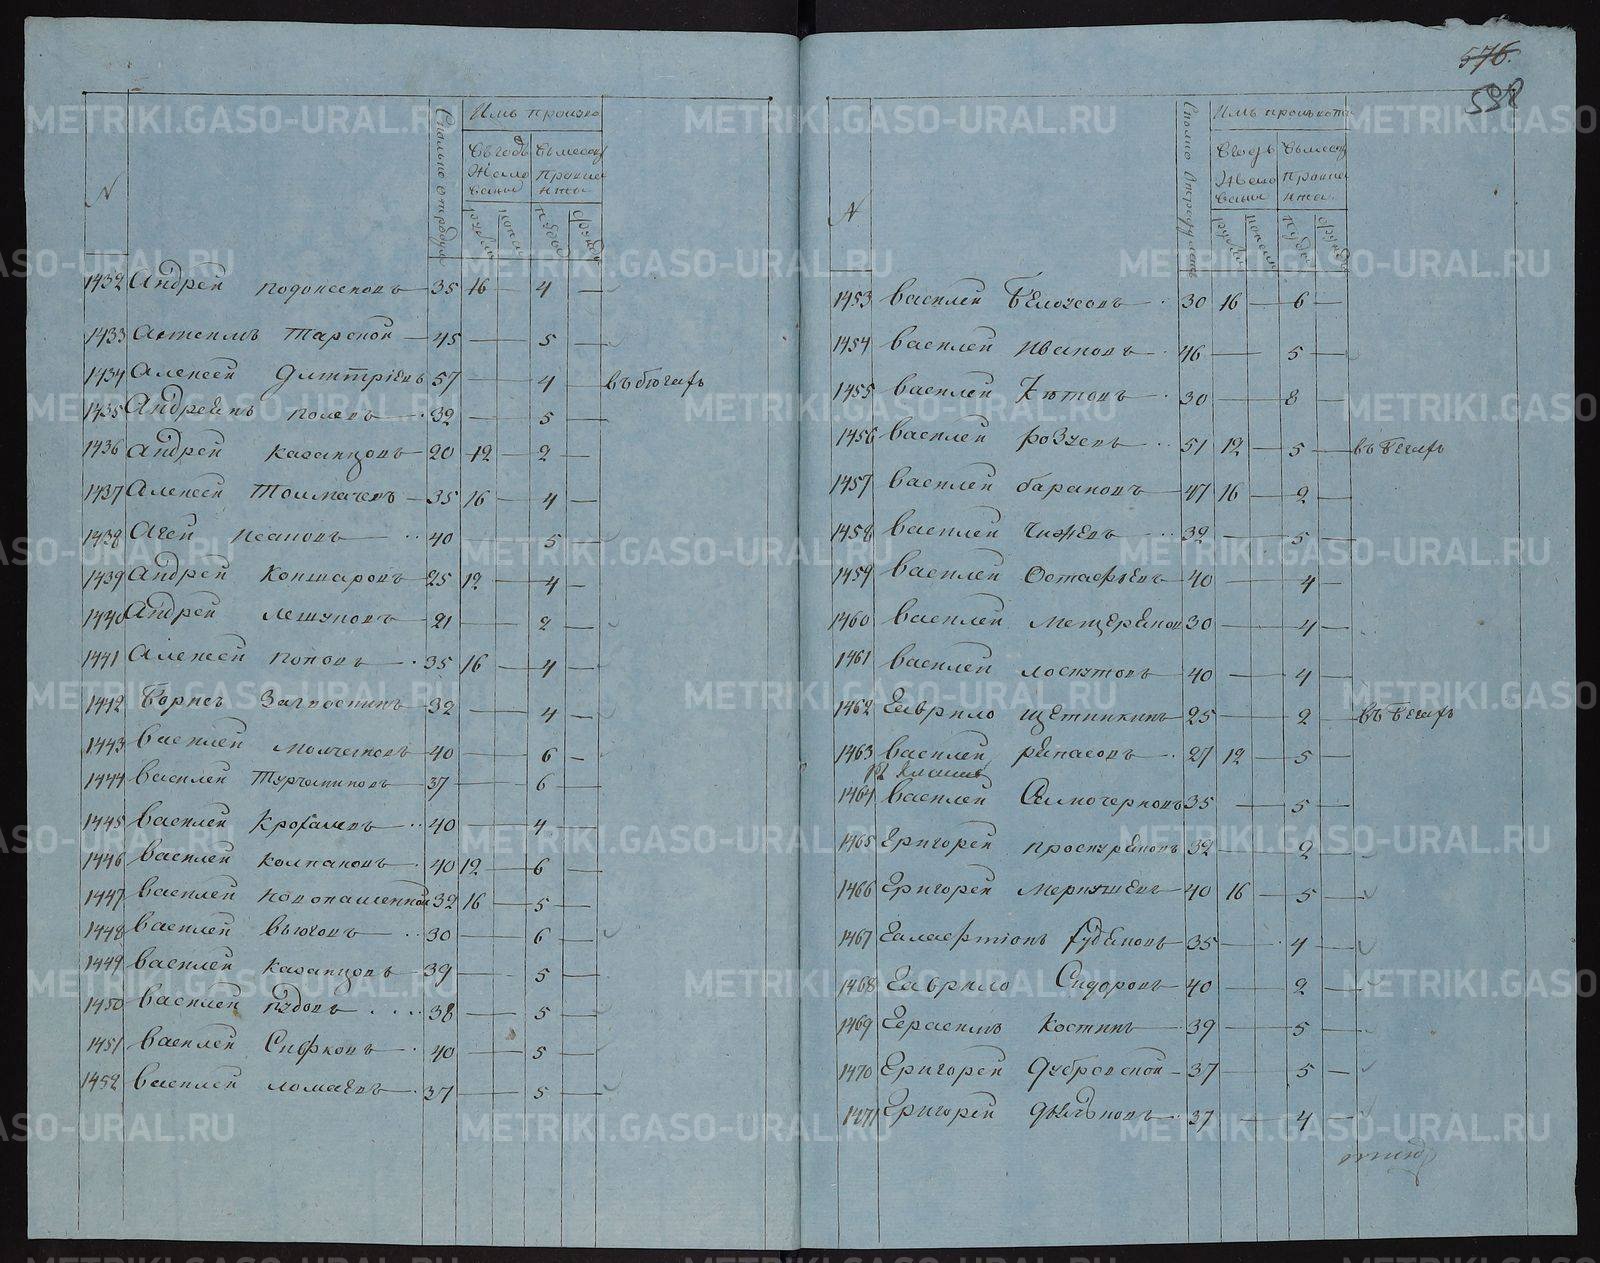 576.
588
N
Сколько отъ роду
Имъ произво
Въ годъ Жало ванья
въ месецъ провиа нта
рубли
копеи
пуды
фунды
1432 Андрей подоксеновъ 35 16 — 4 —
1433 Астепмъ тарской — 45 — 5 —
1434 Алексей Дмитріевъ 57 — 4 — въ бѣгахъ
1435 Андреянъ полевъ 32 — 5 —
1436 Андрей казанцовъ 20 12 — 2 —
1437 Алексей Толмачевъ — 35 16 — 4 —
1438 Агей Исаковъ — 40 — 5 —
1439 Андрей Коншаровъ 25 12 — 4 —
1440 Андрей лешуковъ — 21 — 2 —
1441 Алексей поповъ 35 16 — 4 —
1442 Борисъ Загвоскинъ 32 — 4 —
1443 Василей молчановъ 40 — 6 —
1444 Василей Турчениновъ 37 — 6 —
1445 Василей Крохалевъ 40 — 4 —
1446 Василей колпаковъ 40 12 — 6 —
1447 Василей новопашенной 32 16 — 5 —
1448 Василей вьюговъ 30 — 6 —
1449 Василей казанцовъ 39 — 5 —
1450 Василей рудовъ 38 — 5 —
1451 Василей 40 — 5 —
1452 Василей ломаевъ 37 — 5 —
N
Сколко отъ роду летъ
Имъ произвотъ
Въ годъ Жало ванья
въ месецъ правиа нта
рубли
копеи
пуды
фунды
1453 Василей Белоусовъ 30 16 — 6 —
1454 Василей Ивановъ 46 — 5 —
1455 Василей Кетовъ 30 — 8 —
1456 Василей 51 12 — 5 — въ бѣгахъ
1457 Василей барановъ — 47 16 — 2 —
1458 Василей Чижевъ 32 — 5 —
1459 Василей Остафьевъ 40 — 4 —
1460 Василей мещеряков 30 — 4 —
1461 Василей лоскутовъ 40 — 4 —
1462 Гаврило щетинкинъ 25 — 2 — въ бѣгахъ
1463 Василей репасовъ 27 12 — 5 —
1464 Василей Самочерновъ 35 — 5 —
1465 Григорей проскуряковъ 32 — 2 —
1466 Григорей меркушевъ 40 16 — 5 —
1467 Галафтіонъ 35 — 4 —
1468 Гаврило Сидоровъ 40 — 2 —
1469 Герасимъ Костинъ 39 — 5 —
1470 Григорей Дубровской — 37 — 5 —
1471 Григорей 37 — 4 —